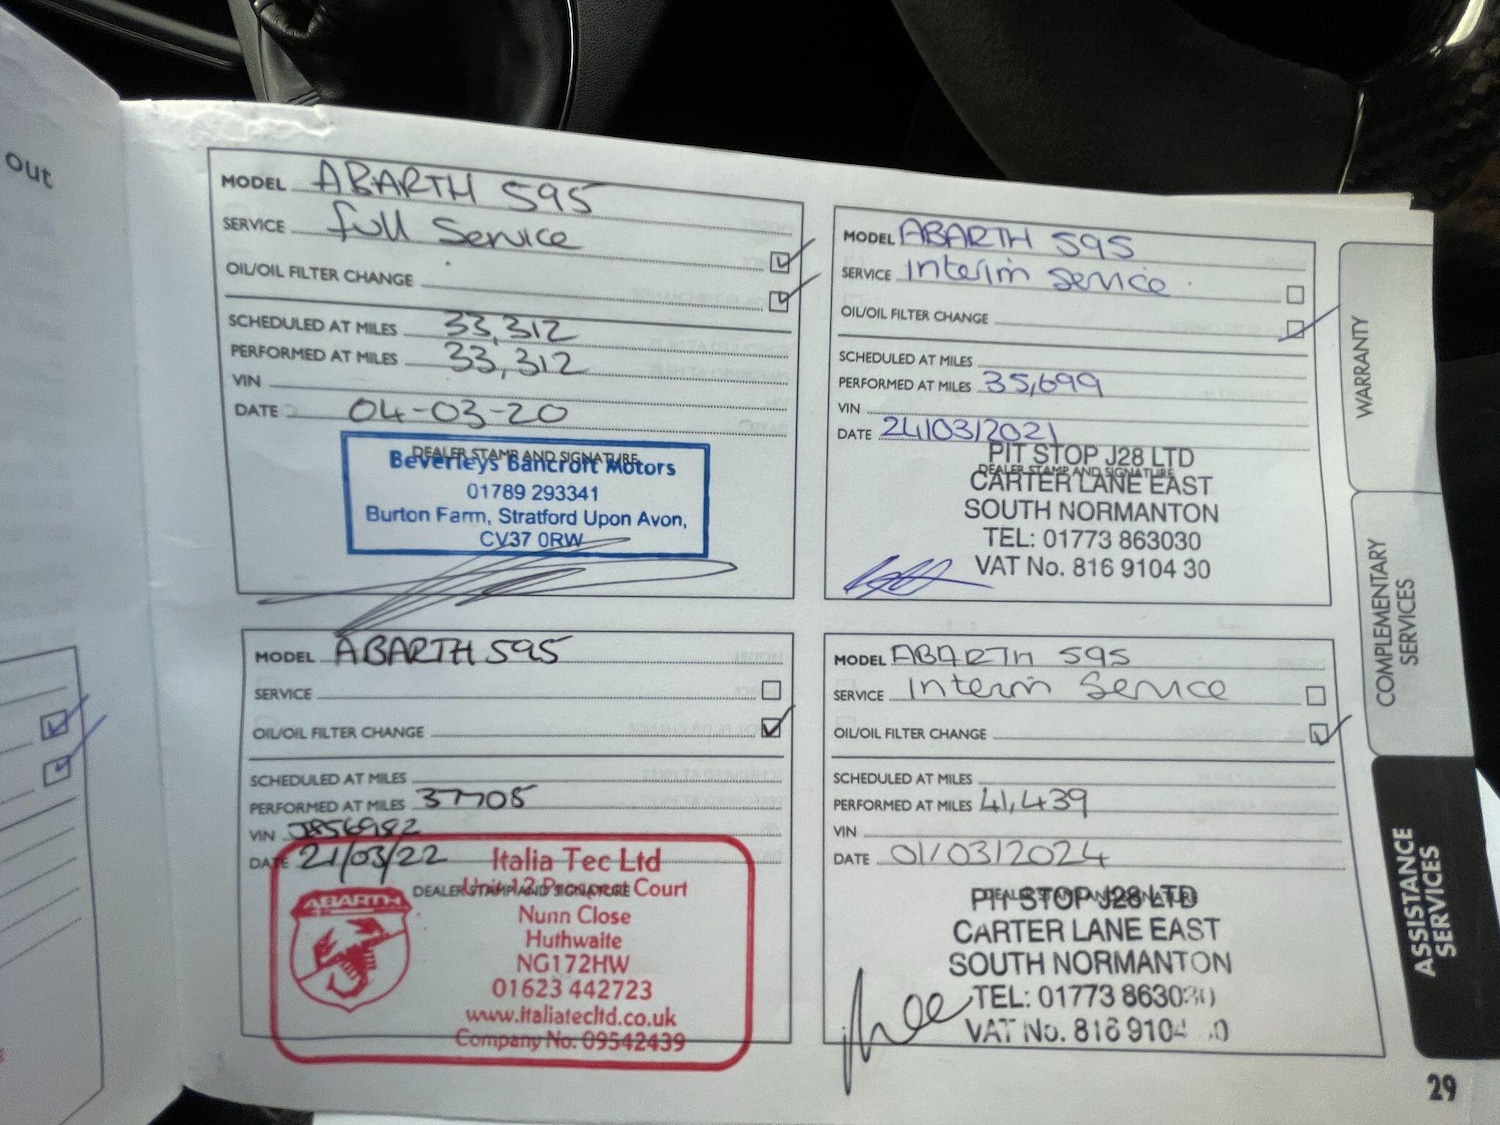 out
MODEL ABARTH 595
SERVICE full Service
OIL/OIL FILTER CHANGE
SCHEDULED AT MILES 33,312
PERFORMED AT MILES 33,312
VIN
DATE 04-03-20
DEALER STAMP AND SIGNATURE
Beverleys Bancroft Motors
01789 293341
Burton Farm, Stratford Upon Avon,
CV37 0RW
MODEL ABARTH 595
SERVICE Interim Service
OIL/OIL FILTER CHANGE
SCHEDULED AT MILES
PERFORMED AT MILES 35,699
VIN
DATE 24/03/2021
DEALER STAMP AND SIGNATURE
PIT STOP J28 LTD
CARTER LANE EAST
SOUTH NORMANTON
TEL: 01773 863030
VAT No. 816 9104 30
MODEL ABARTH 595
SERVICE
OIL/OIL FILTER CHANGE
SCHEDULED AT MILES
PERFORMED AT MILES 37705
VIN J856982
DATE 21/03/22
DEALER STAMP AND SIGNATURE
ABARTH
Italia Tec Ltd
Unit 12 Court
Nunn Close
Huthwaite
NG172HW
01623 442723
www.italiatecltd.co.uk
Company No: 09542439
MODEL ABARTH 595
SERVICE Interim Service
OIL/OIL FILTER CHANGE
SCHEDULED AT MILES
PERFORMED AT MILES 41,439
VIN
DATE 01/03/2024
DEALER STAMP AND SIGNATURE
PIT STOP J28 LTD
CARTER LANE EAST
SOUTH NORMANTON
TEL: 01773 863030
VAT No. 816 9104 30
WARRANTY
COMPLEMENTARY
SERVICES
ASSISTANCE
SERVICES
29